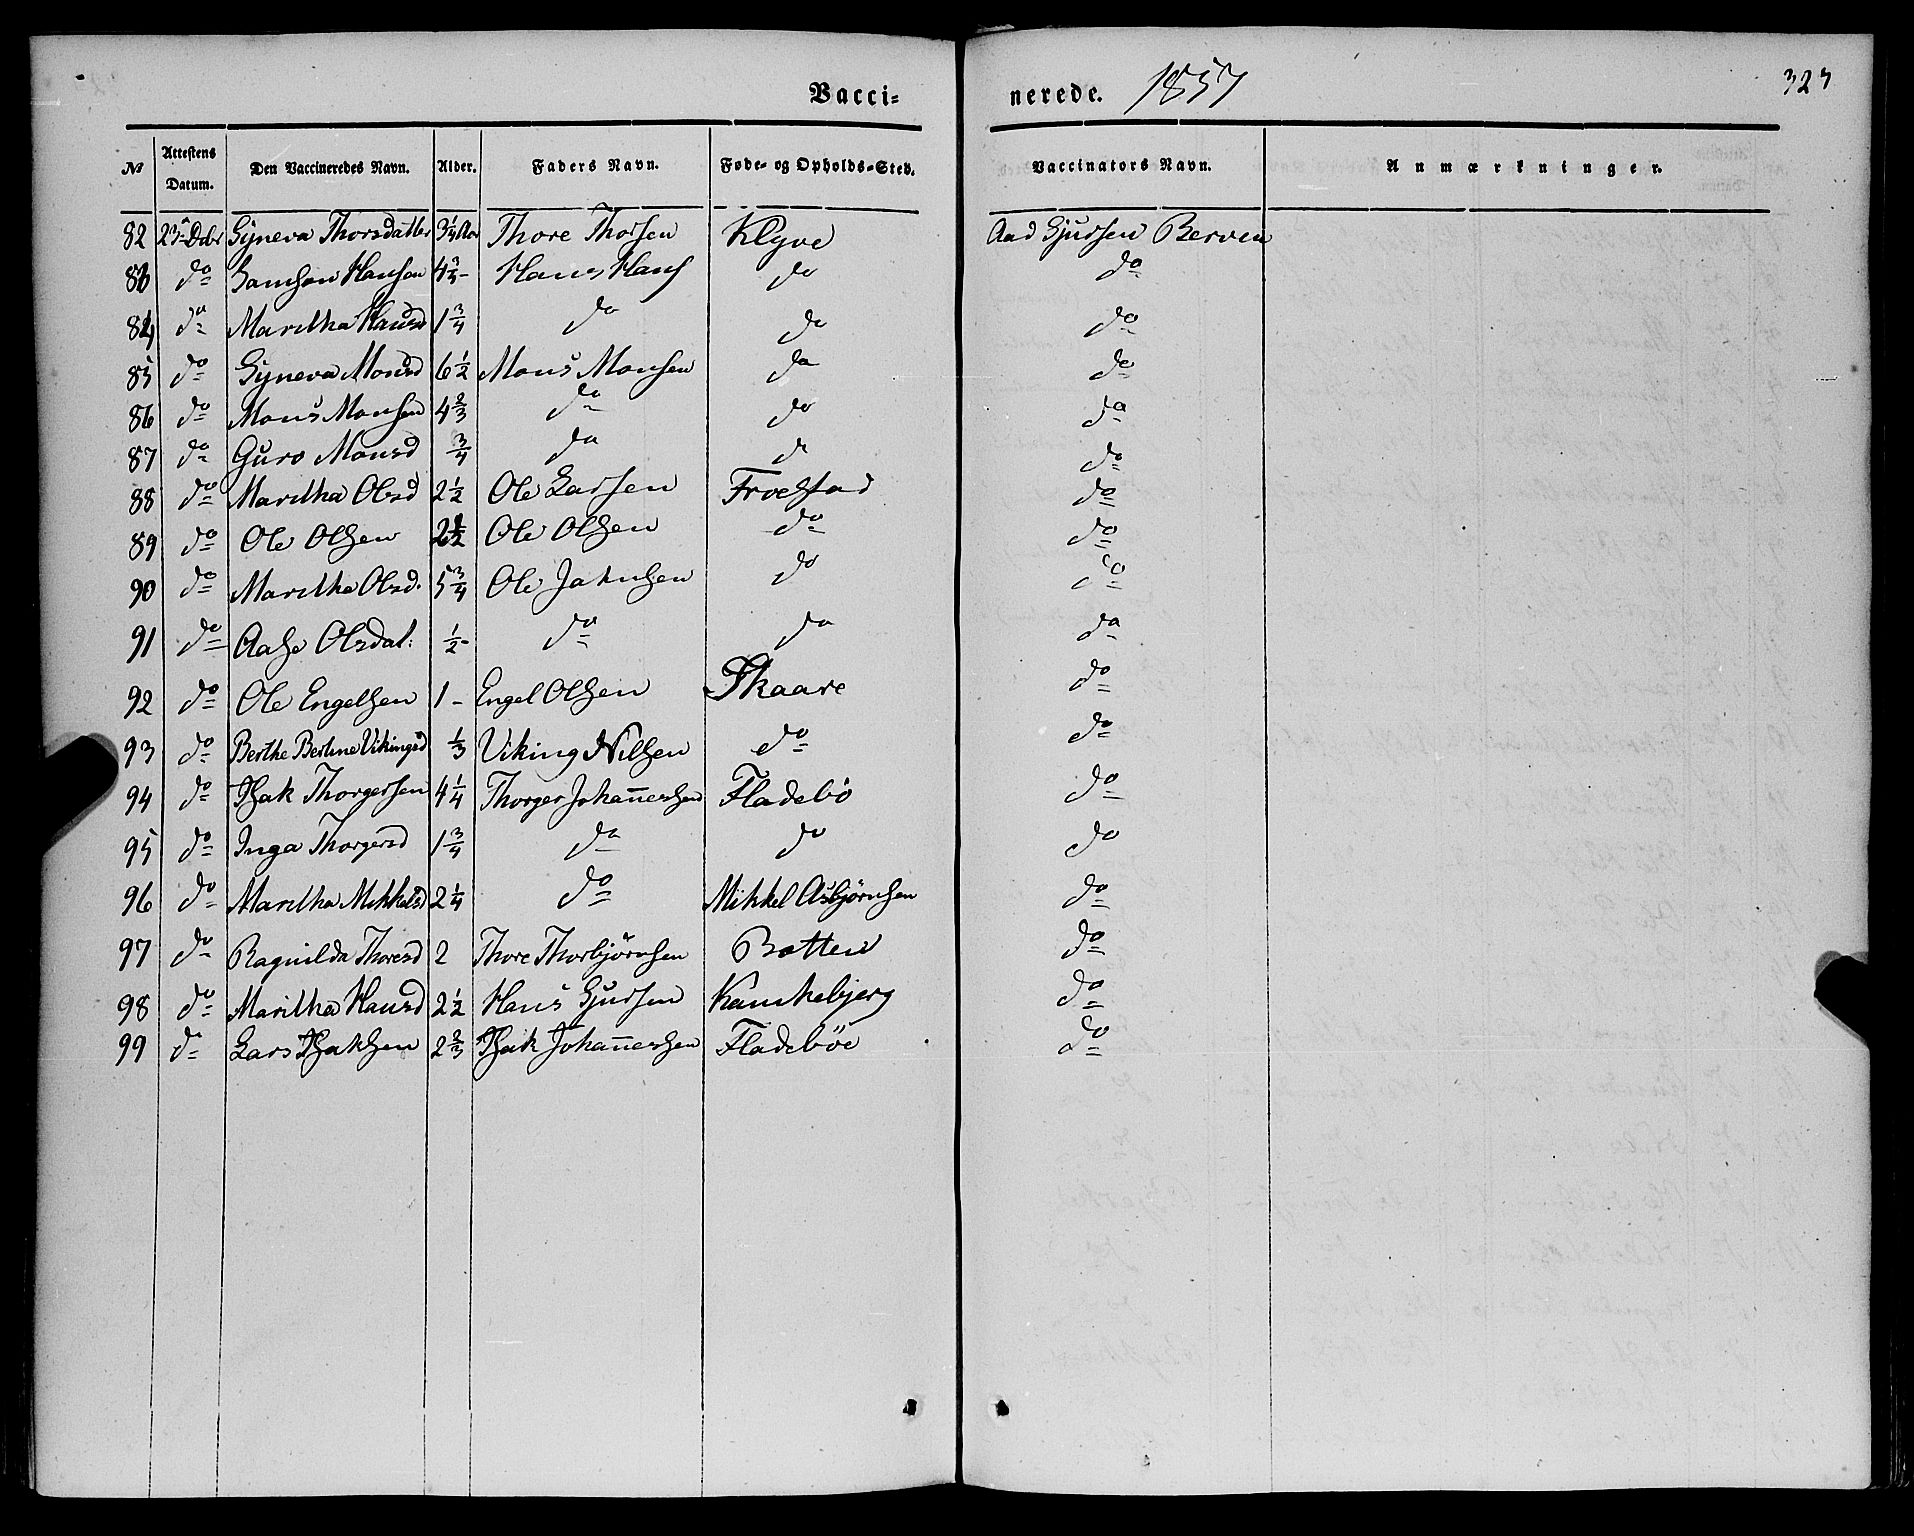 Vacci- nerede. 1857 323
No Attestens Datum. Den Vaccineredes Navn. Alder. Faders Navn. Føde- og Opholds-Sted. Vaccinators Navn. Anmærkninger.
82 23 Dcbr Syneva Thorsdatter 3 1/4 Thore Thorsen Klyve Aad Gjursen Berven
83 do Samson Hanson Hans Hans do do
84 do Maritha Hansd 1 3/4 do do do
85 do Syneva Monsd 6 1/2 Mons Monsen do do
86 do Mons Monsen 4 2/3 do do do
87 do Guro Monsd 3/4 do do do
88 do Maritha Olsd 2 1/2 Ole Larsen do
89 do Ole Olsen 2 1/2 Ole Olsen do do
90 do Maritha Olsd. 5 3/4 Ole Jakusen do do
91 do Aase Olsdat: 1/2- do do do
92 do Ole Engelsen 1 - Engel Olsen Skaare do
93 do Berthe Bertine Vikingsd 1/3 Viking Nilsen do do
94 do Isak Thorgersen 4 1/4 Thorger Johannessen Fladebö do
95 do Inga Thorgersd 1 3/4 do do do
96 do Maritha Mikkelsd 2 1/4 do Mikkel Asbjørnsen do
97 do Ragnilda Thoresd 2 Thore Thorbjörnsen Botten do
98 do Maritha Hansd 2 1/2 Hans Gjursen do
99 do Lars Isaksen 2 2/3 Isak Johannessen Fladeböe do